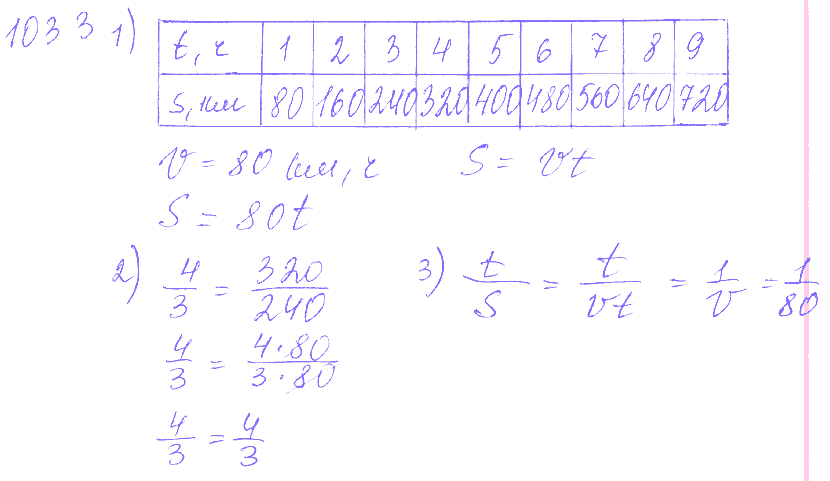 1033 1)
t, ч 1 2 3 4 5 6 7 8 9
s, км 80 160 240 320 400 480 560 640 720
v = 80 км, ч S = vt
S = 80t
2) 4/3 = 320/240
4/3 = 4·80/3·80
4/3 = 4/3
3) t/S = t/vt = 1/v = 1/80